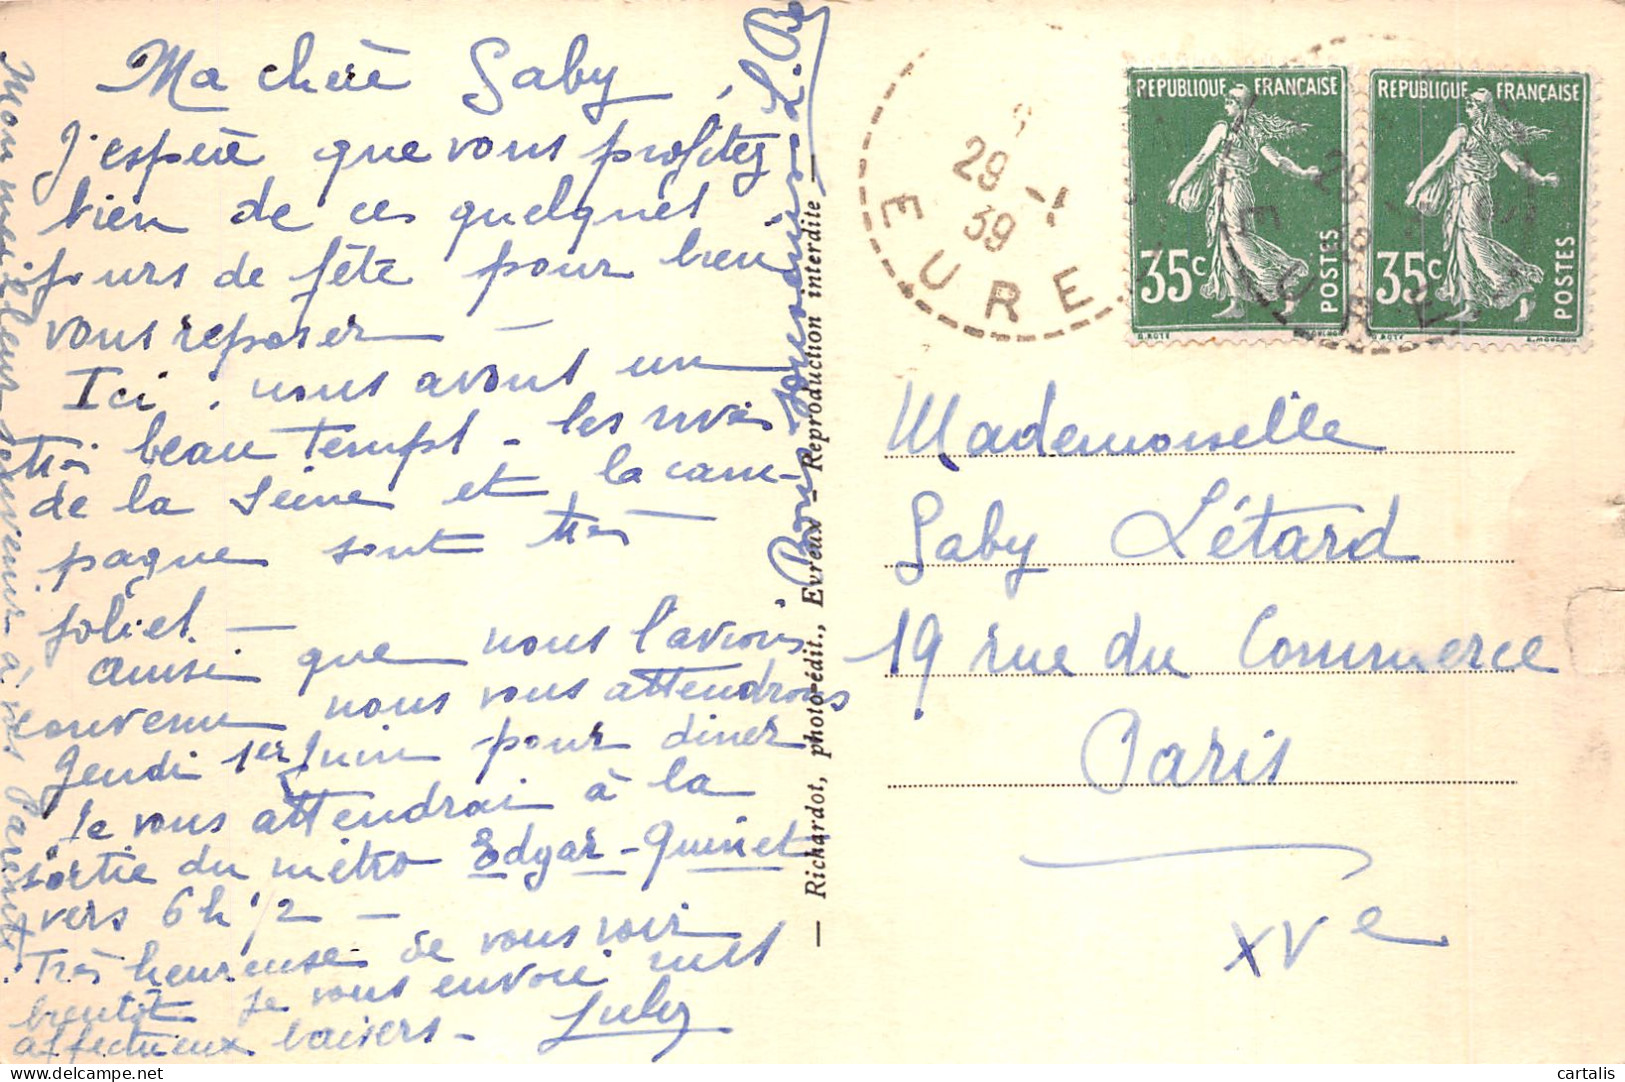 Ma chère Gaby,
J'espère que vous profitez
bien de ces quelques
jours de fête pour bien
vous reposer —
Ici, nous avons un
très beau temps - les rives
de la Seine et la cam-
pagne sont très —
jolies. —
Ainsi que nous l'avions
convenu nous vous attendrons
Jeudi 1er Juin pour diner
Je vous attendrai à la
sortie du métro Edgar-Quinet
vers 6h 1/2 —
Très heureuse de vous voir
bientôt je vous envoie mes
affectueux baisers -
Mon meilleur souvenir à vos Parents
Bons souvenirs
— Richardot, photo-édit., Evreux - Reproduction interdite —
29 -
39
EURE
REPUBLIQUE FRANÇAISE
35c
POSTES
REPUBLIQUE FRANÇAISE
35c
POSTES
Mademoiselle
Gaby Létard
19 rue du Commerce
Paris
XVe
cartalis